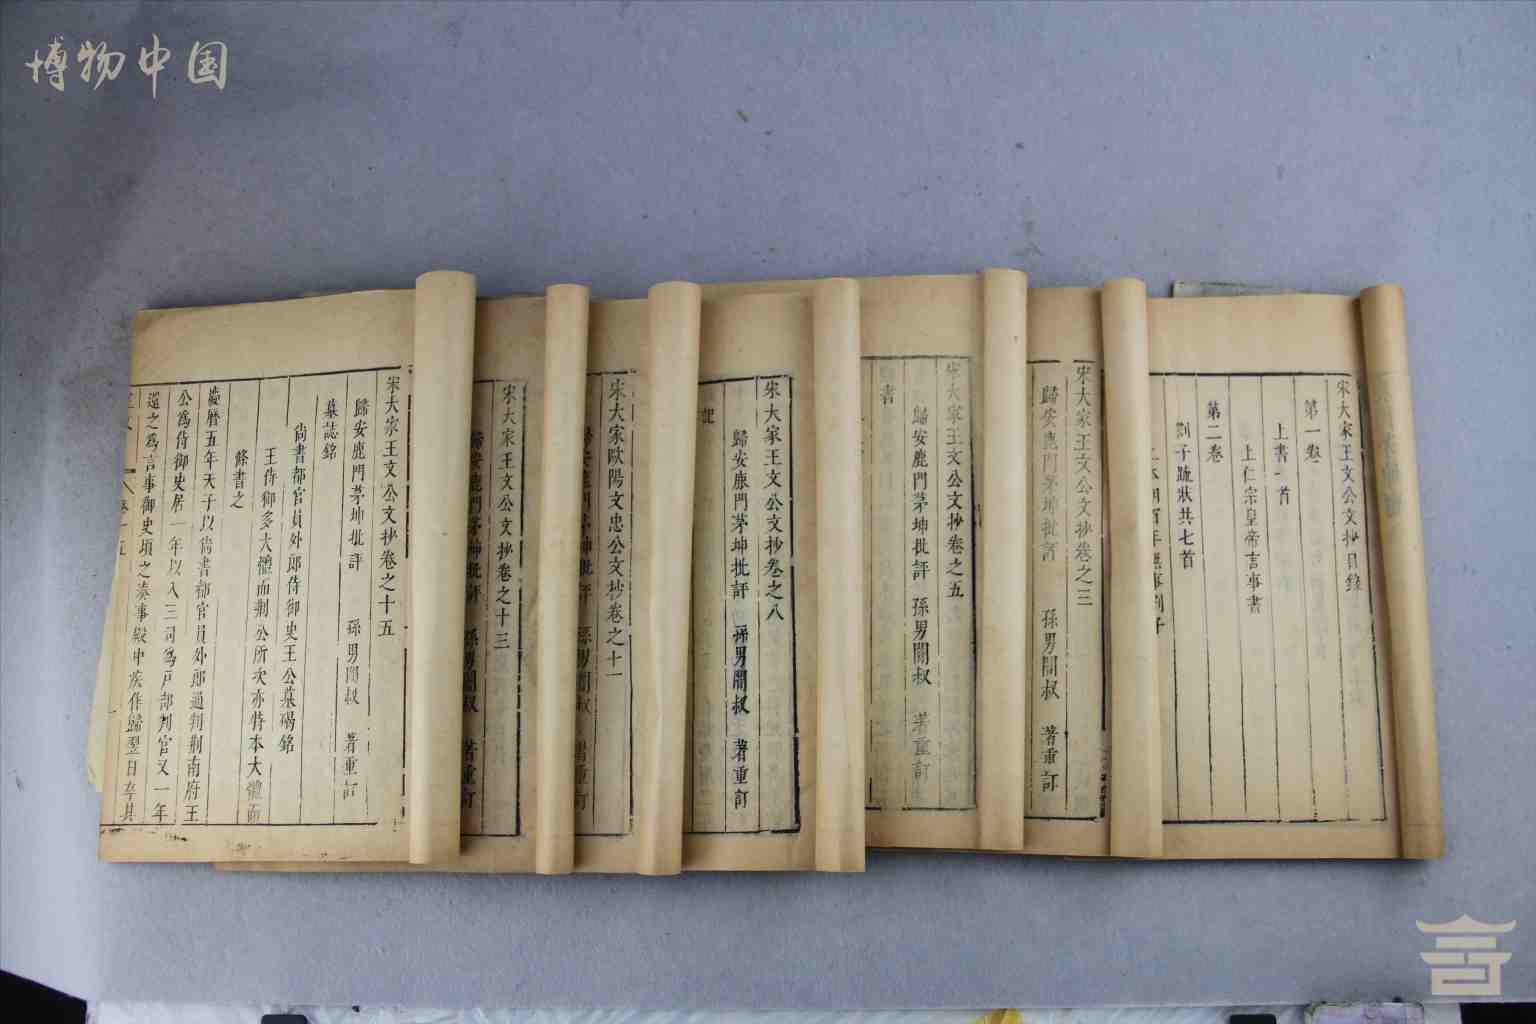 博物中国
宋大家王文公文抄目錄
第一卷
上書一首
上仁宗皇帝言事書
第二卷
劄子疏狀共七首
本朝百年無事劄子
宋大家王文公文抄卷之三
歸安鹿門茅坤批評 孫男闇叔 著重訂
宋大家王文公文抄卷之五
歸安鹿門茅坤批評 孫男闇叔 著重訂
書
宋大家王文公文抄卷之八
歸安鹿門茅坤批評 孫男闇叔 著重訂
記
宋大家歐陽文忠公文抄卷之十一
歸安鹿門茅坤批評 孫男闇叔 著重訂
宋大家王文公文抄卷之十三
歸安鹿門茅坤批評 孫男闇叔 著重訂
宋大家王文公文抄卷之十五
歸安鹿門茅坤批評 孫男闇叔 著重訂
墓誌銘
尚書都官員外郎侍御史王公墓碣銘
王侍御多大體而荆公所次亦特本大體而
條書之
慶曆五年天子以尚書都官員外郎通判荆南府王
公爲侍御史居一年以入三司爲戶部判官又一年
還之爲言事御史頃之奏事殿中疾作歸翌日卒其